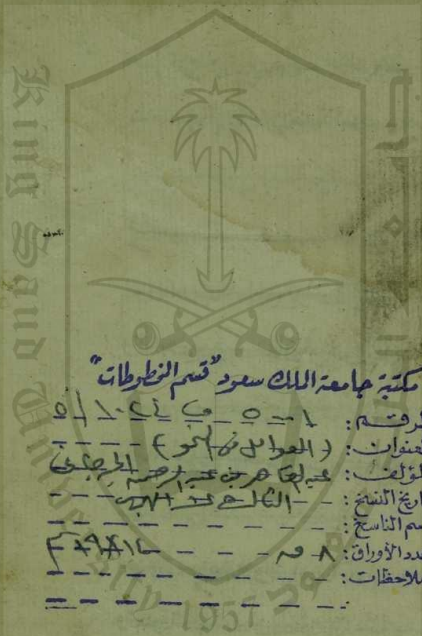 King Saud University
1957
مكتبة جامعة الملك سعود "قسم المخطوطات"
الرقم: ٥٠٠١
العنوان: (العوامل في النحو)
المؤلف: عبد القاهر بن عبد الرحمن الجرجاني
تاريخ النسخ: الثالث عشر الهجري
اسم الناسخ:
عدد الأوراق: ٨ ق
ملاحظات: